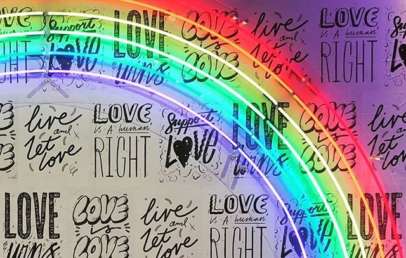 Support
Love
LOVE
wins
LOVE
is
LOVE
live
and
let
love
LOVE
IS A human
RIGHT
Support
LOVE
LOVE
LOVE
live
and
let
love
LOVE
IS A human
RIGHT
Support
LOVE
LOVE
wins
LOVE
is
LOVE
live
and
let
love
LOVE
RIGHT
LOVE
wins
LOVE
is
LOVE
live
and
let
love
LOVE
IS A human
RIGHT
Support
LOVE
wins